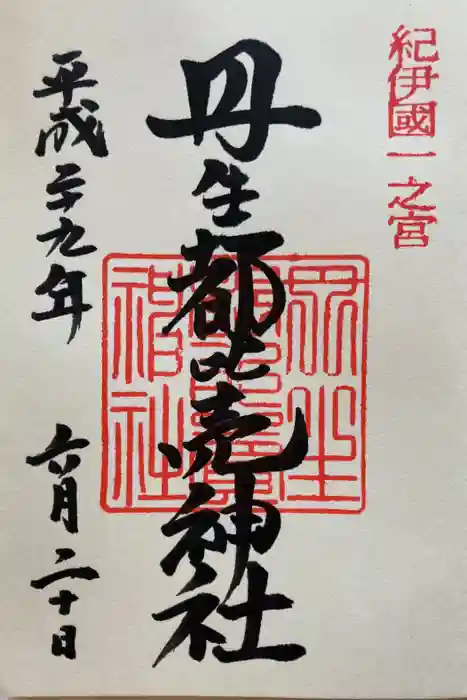 紀伊國一之宮
丹生都比売神社
平成二十九年
六月二十日